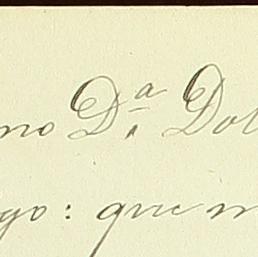 no D.ª Dol
go: que m